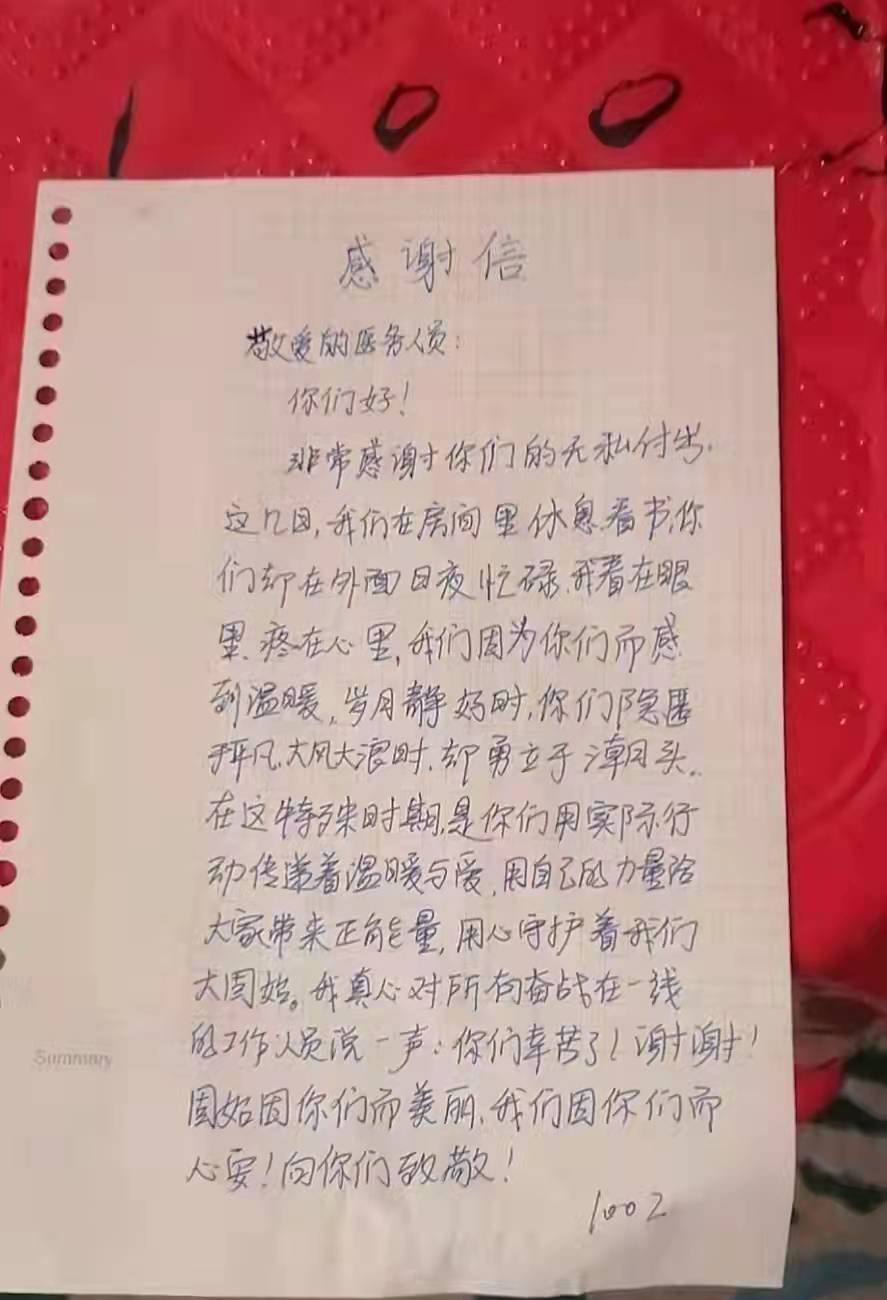 100
感谢信
敬爱的医务人员:
你们好!
非常感谢你们的无私付出.
这几日,我们在房间里休息看书,你
们却在外面日夜忙碌.我看在眼
里.疼在心里,我们因为你们而感
到温暖,岁月静好时,你们隐匿
平凡.大风大浪时.却勇立于潮头.
在这特殊时期,是你们用实际行
动传递着温暖与爱,用自己的力量给
大家带来正能量,用心守护着我们
大固始。我真心对所有奋战在一线
的工作人员说一声:你们辛苦了!谢谢!
固始因你们而美丽.我们因你们而
心安!向你们致敬!
1002
Summary